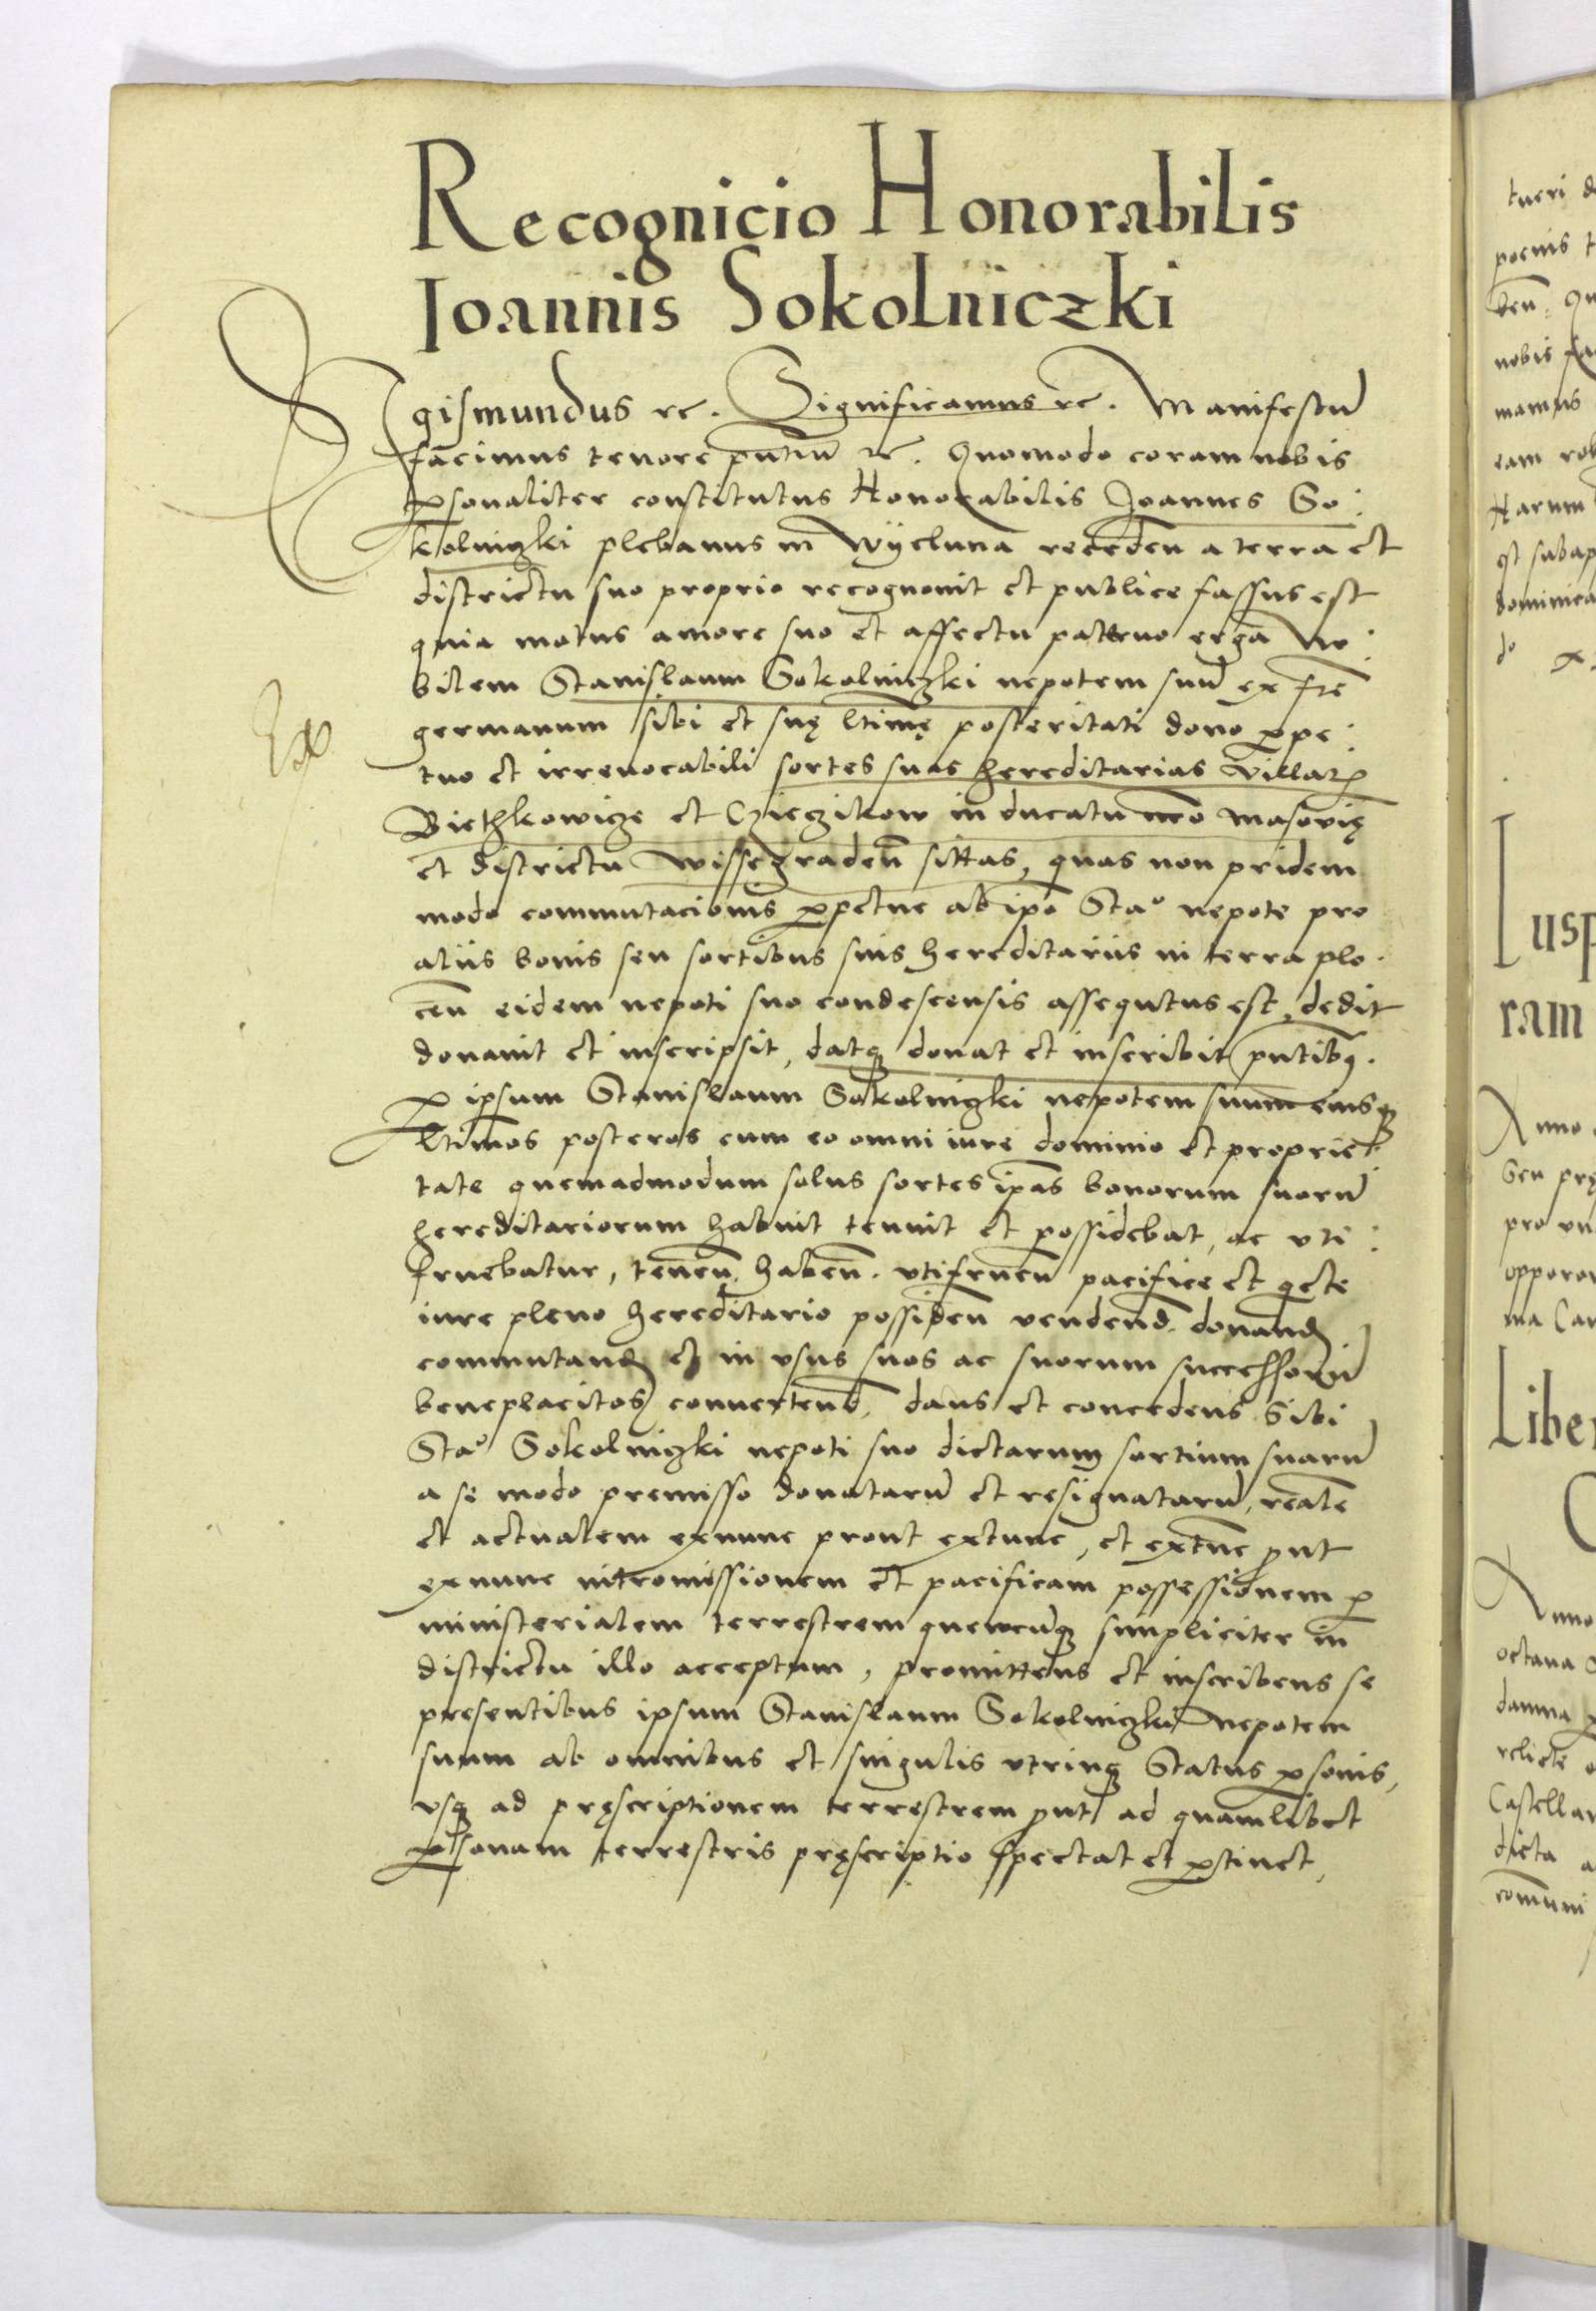 Recognicio Honorabilis
Joannis Sokolniczki
Sigismundus rc. Significamus rc. Manifestū
facimus tenore pntiū rc. Quomodo coram nobis
ꝑsonaliter constitutus Honorabilis Joannes So:
kolniczki plebanus in Wyeluna recedeñ a terra et
districtu suo proprio recognouit et publice fassus est
quia motus amore suo et affectu paterno erga No:
bilem Stanislaum Sokolniczki nepotem suū ex frē
germanum sibi et suę ltimę posteritati dono ꝑpe:
tuo et irreuocabili sortes suas hereditarias villarꝝ
Biethkowicze et Cziezikow in ducatu nr̄o Masovię
et districtu Wissegradeñ sittas, quas non pridem
modo commutacionis ꝑpetue ab ip̄o Stao nepote pro
aliis bonis seu sortibus suis hereditariis in terra plo:
ceñ eidem nepoti suo condescensis assequtus est, dedit
donauit et inscripsit, datqꝫ donat et inscribit pn̄tibꝫ.
ꝑ ipsum Stanislaum Sokolniczki nepotem suum eiusqꝫ
ltimos posteros cum eo omni iure dominio et proprie:
tate quemadmodum solus sortes ip̄as bonorum suorū
hereditariorum habuit tenuit et possidebat, ac vti:
fruebatur, teneñ. habeñ. vtifrueñ pacifice et q̄ete
iure pleno hereditario possideñ vendend. donand
commutand et in vsus suos ac suorum successorū
beneplacitos conuertend, dans et concedens sibi
Stao Sokolniczki nepoti suo dictarum sortium suarū
a se modo premisso donatarū et resignatarū, realē
et actualem exnunc prout extunc, et extunc ꝓut
exnunc intromissionem et pacificam possessionem ꝑ
ministerialem terrestrem quemcūqꝫ simpliciter in
districtu illo acceptum, promittens et inscribens se
presentibus ipsum Stanislaum Sokolniczki nepotem
suum ab omnibus et singulis vtriusqꝫ status ꝑsonis,
vsqꝫ ad pręscriptionem terrestrem ꝓut ad quamlibet
ꝑsonam terrestris pręscriptio spectat et ꝑtinet,